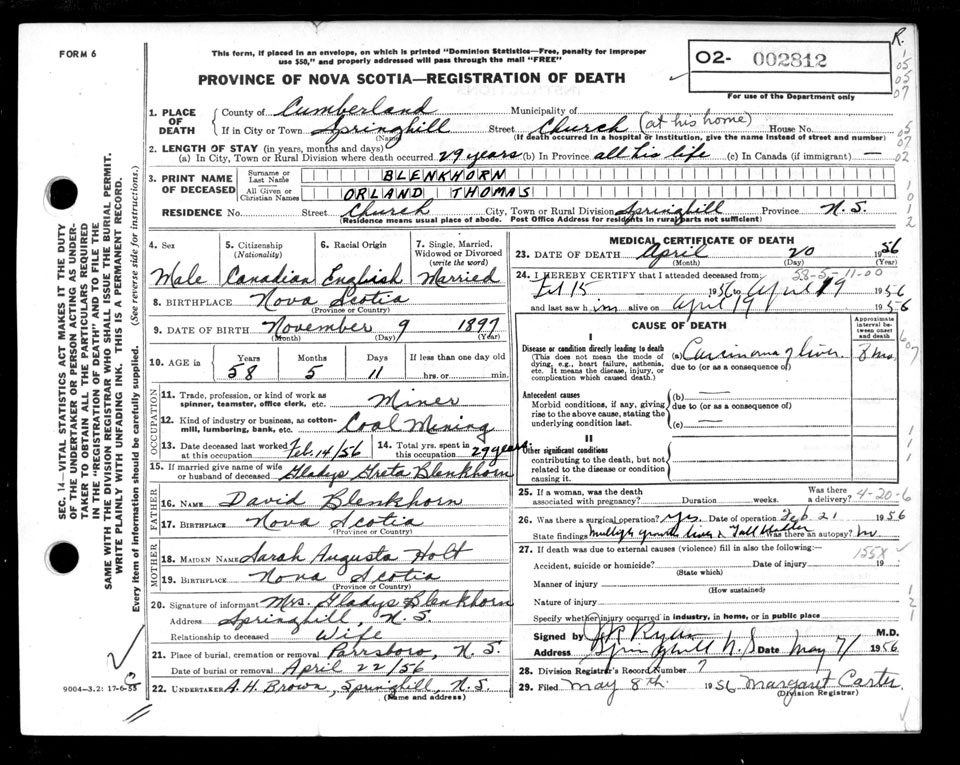 FORM 6
This form, if placed in an envelope, on which is printed "Dominion Statistics—Free, penalty for improper
use $50," and properly addressed will pass through the mail "FREE"
PROVINCE OF NOVA SCOTIA—REGISTRATION OF DEATH
02- 002812
For use of the Department only
R.
1
05
05
07
05
07
02
1
0
1
2
1. PLACE OF DEATH
County of Cumberland Municipality of
If in City or Town Springhill Street Church (at his home) House No.
(Name) (If death occurred in a hospital or institution, give the name instead of street and number)
2. LENGTH OF STAY (in years, months and days)
(a) In City, Town or Rural Division where death occurred 29 years (b) In Province all his life (c) In Canada (if immigrant) —
3. PRINT NAME OF DECEASED
Surname or Last Name BLENKHORN
All Given or Christian Names ORLAND THOMAS
RESIDENCE No. Street Church City, Town or Rural Division Springhill Province N.S.
(Residence means usual place of abode. Post Office Address for residents in rural parts not sufficient)
4. Sex
Male
5. Citizenship
(Nationality)
Canadian
6. Racial Origin
English
7. Single, Married, Widowed or Divorced
(write the word)
Married
8. BIRTHPLACE Nova Scotia
(Province or Country)
9. DATE OF BIRTH November 9 1897
(Month) (Day) (Year)
10. AGE in
Years Months Days If less than one day old
58 5 11 hrs. or min.
OCCUPATION
11. Trade, profession, or kind of work as spinner, teamster, office clerk, etc. Miner
12. Kind of industry or business, as cotton-mill, lumbering, bank, etc. Coal Mining
13. Date deceased last worked at this occupation Feb. 14/56
14. Total yrs. spent in this occupation 29 years
15. If married give name of wife or husband of deceased Gladys Greta Blenkhorn
FATHER
16. NAME David Blenkhorn
17. BIRTHPLACE Nova Scotia
(Province or Country)
MOTHER
18. MAIDEN NAME Sarah Augusta Holt
19. BIRTHPLACE Nova Scotia
(Province or Country)
20. Signature of informant Mrs. Gladys Blenkhorn
Address Springhill, N.S.
Relationship to deceased Wife
21. Place of burial, cremation or removal Parrsboro, N.S.
Date of burial or removal April 22/56
22. UNDERTAKER A. H. Brown, Springhill, N.S.
(Name and address)
MEDICAL CERTIFICATE OF DEATH
23. DATE OF DEATH April 20 1956
(Month) (Day) (Year)
58-5-11-00
24. I HEREBY CERTIFY that I attended deceased from:
Feb 15 1956 to April 19 1956
and last saw him alive on April 19 1956
CAUSE OF DEATH
Approximate interval between onset and death
I
Disease or condition directly leading to death
(This does not mean the mode of dying, e.g., heart failure, asthenia, etc. It means the disease, injury, or complication which caused death.)
(a) Carcinoma of liver 8 mos
due to (or as a consequence of)
Antecedent causes
Morbid conditions, if any, giving rise to the above cause, stating the underlying condition last.
(b) —
due to (or as a consequence of)
(c) —
II
Other significant conditions
contributing to the death, but not related to the disease or condition causing it.
25. If a woman, was the death associated with pregnancy? Duration weeks. Was there a delivery?
4-20-6
26. Was there a surgical operation? Yes Date of operation Feb 21 1956
State findings Multiple growths liver & Gall bladder Was there an autopsy? no
27. If death was due to external causes (violence) fill in also the following:—
155X
Accident, suicide or homicide? Date of injury 19
(State which)
Manner of injury
(How sustained)
Nature of injury
Specify whether injury occurred in industry, in home, or in public place
Signed by Ryan M.D.
Address Springhill N.S. Date May 7/ 1956
28. Division Registrar's Record Number 7
29. Filed May 8th. 1956 Margaret Carter
(Division Registrar)
SEC. 14—VITAL STATISTICS ACT MAKES IT THE DUTY
OF THE UNDERTAKER OR PERSON ACTING AS UNDER-
TAKER TO OBTAIN ALL THE PARTICULARS REQUIRED
IN THE "REGISTRATION OF DEATH" AND TO FILE THE
SAME WITH THE DIVISION REGISTRAR WHO SHALL ISSUE THE BURIAL PERMIT.
WRITE PLAINLY WITH UNFADING INK. THIS IS A PERMANENT RECORD.
Every item of information should be carefully supplied. (See reverse side for instructions.)
9004-3.2: 17-6-55